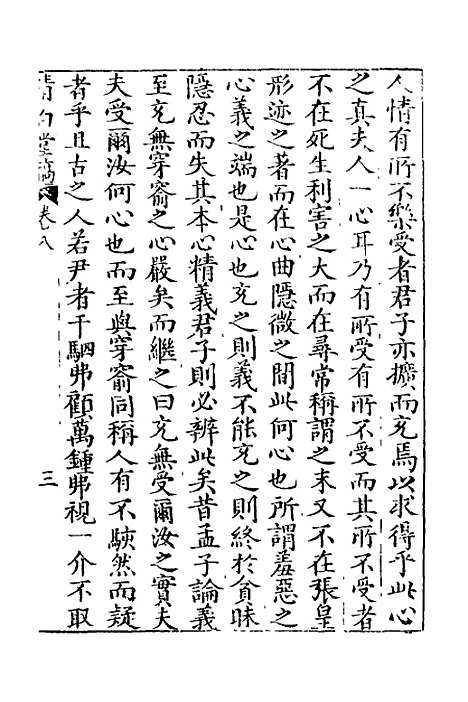 人情有所不樂受者君子亦擴而充焉以求得乎此心
之真夫人一心耳乃有所受有所不受而其所不受者
不在死生利害之大而在尋常稱謂之末又不在張皇
形迹之著而在心曲隱微之間此何心也所謂羞惡之
心義之端也是心也充之則義不能充之則終於貪昧
隱忍而失其本心精義君子則必辨此矣昔孟子論義
至充無穿窬之心嚴矣而繼之曰充無受爾汝之實夫
夫受爾汝何心也而至與穿窬同稱人有不駭然而疑
者乎且古之人若尹者千駟弗顧萬鍾弗視一介不取
清白堂稿 卷八
三